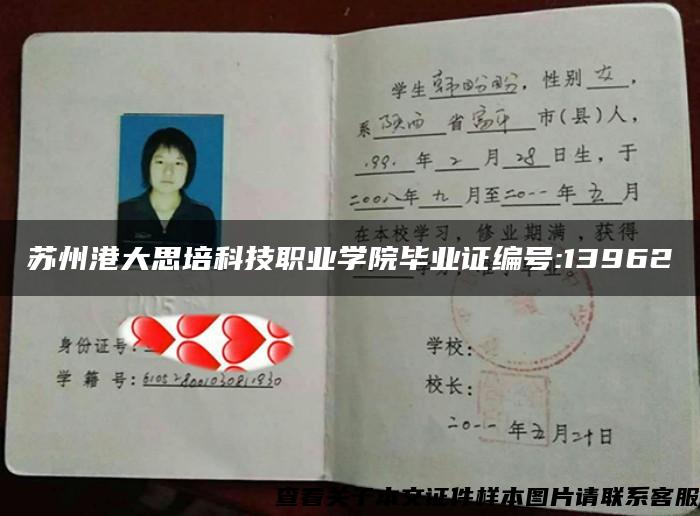 学生韩盼盼，性别女，
系陕西省富平市(县)人，
1991年2月28日生，于
二00八年九月至二0一一年五月
在本校学习，修业期满，获得
苏州港大思培科技职业学院毕业证编号:13962
身份证号:
学籍号:
学校:
校长:
二0一一年五月二十日
查看关于本文证件样本图片请联系客服